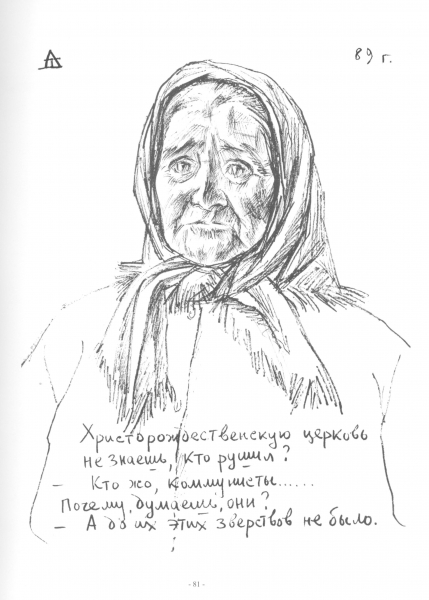 89 г.
Христорождественскую церковь
не знаешь, кто рушил?
– Кто жо, коммунисты......
Почему, думаешь, они?
– А до их этих зверствов не было.
- 81 -